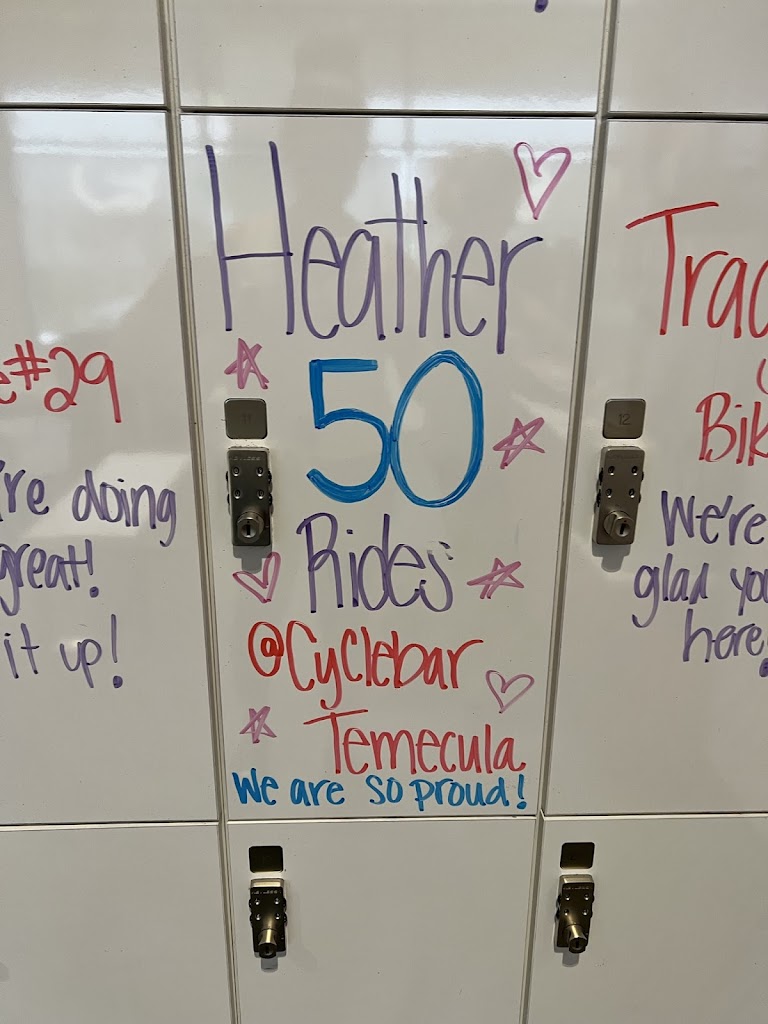 Heather
50
Rides
@Cyclebar
Temecula
We are so proud!
#29
doing
great!
it up!
11
12
We're
glad
here!